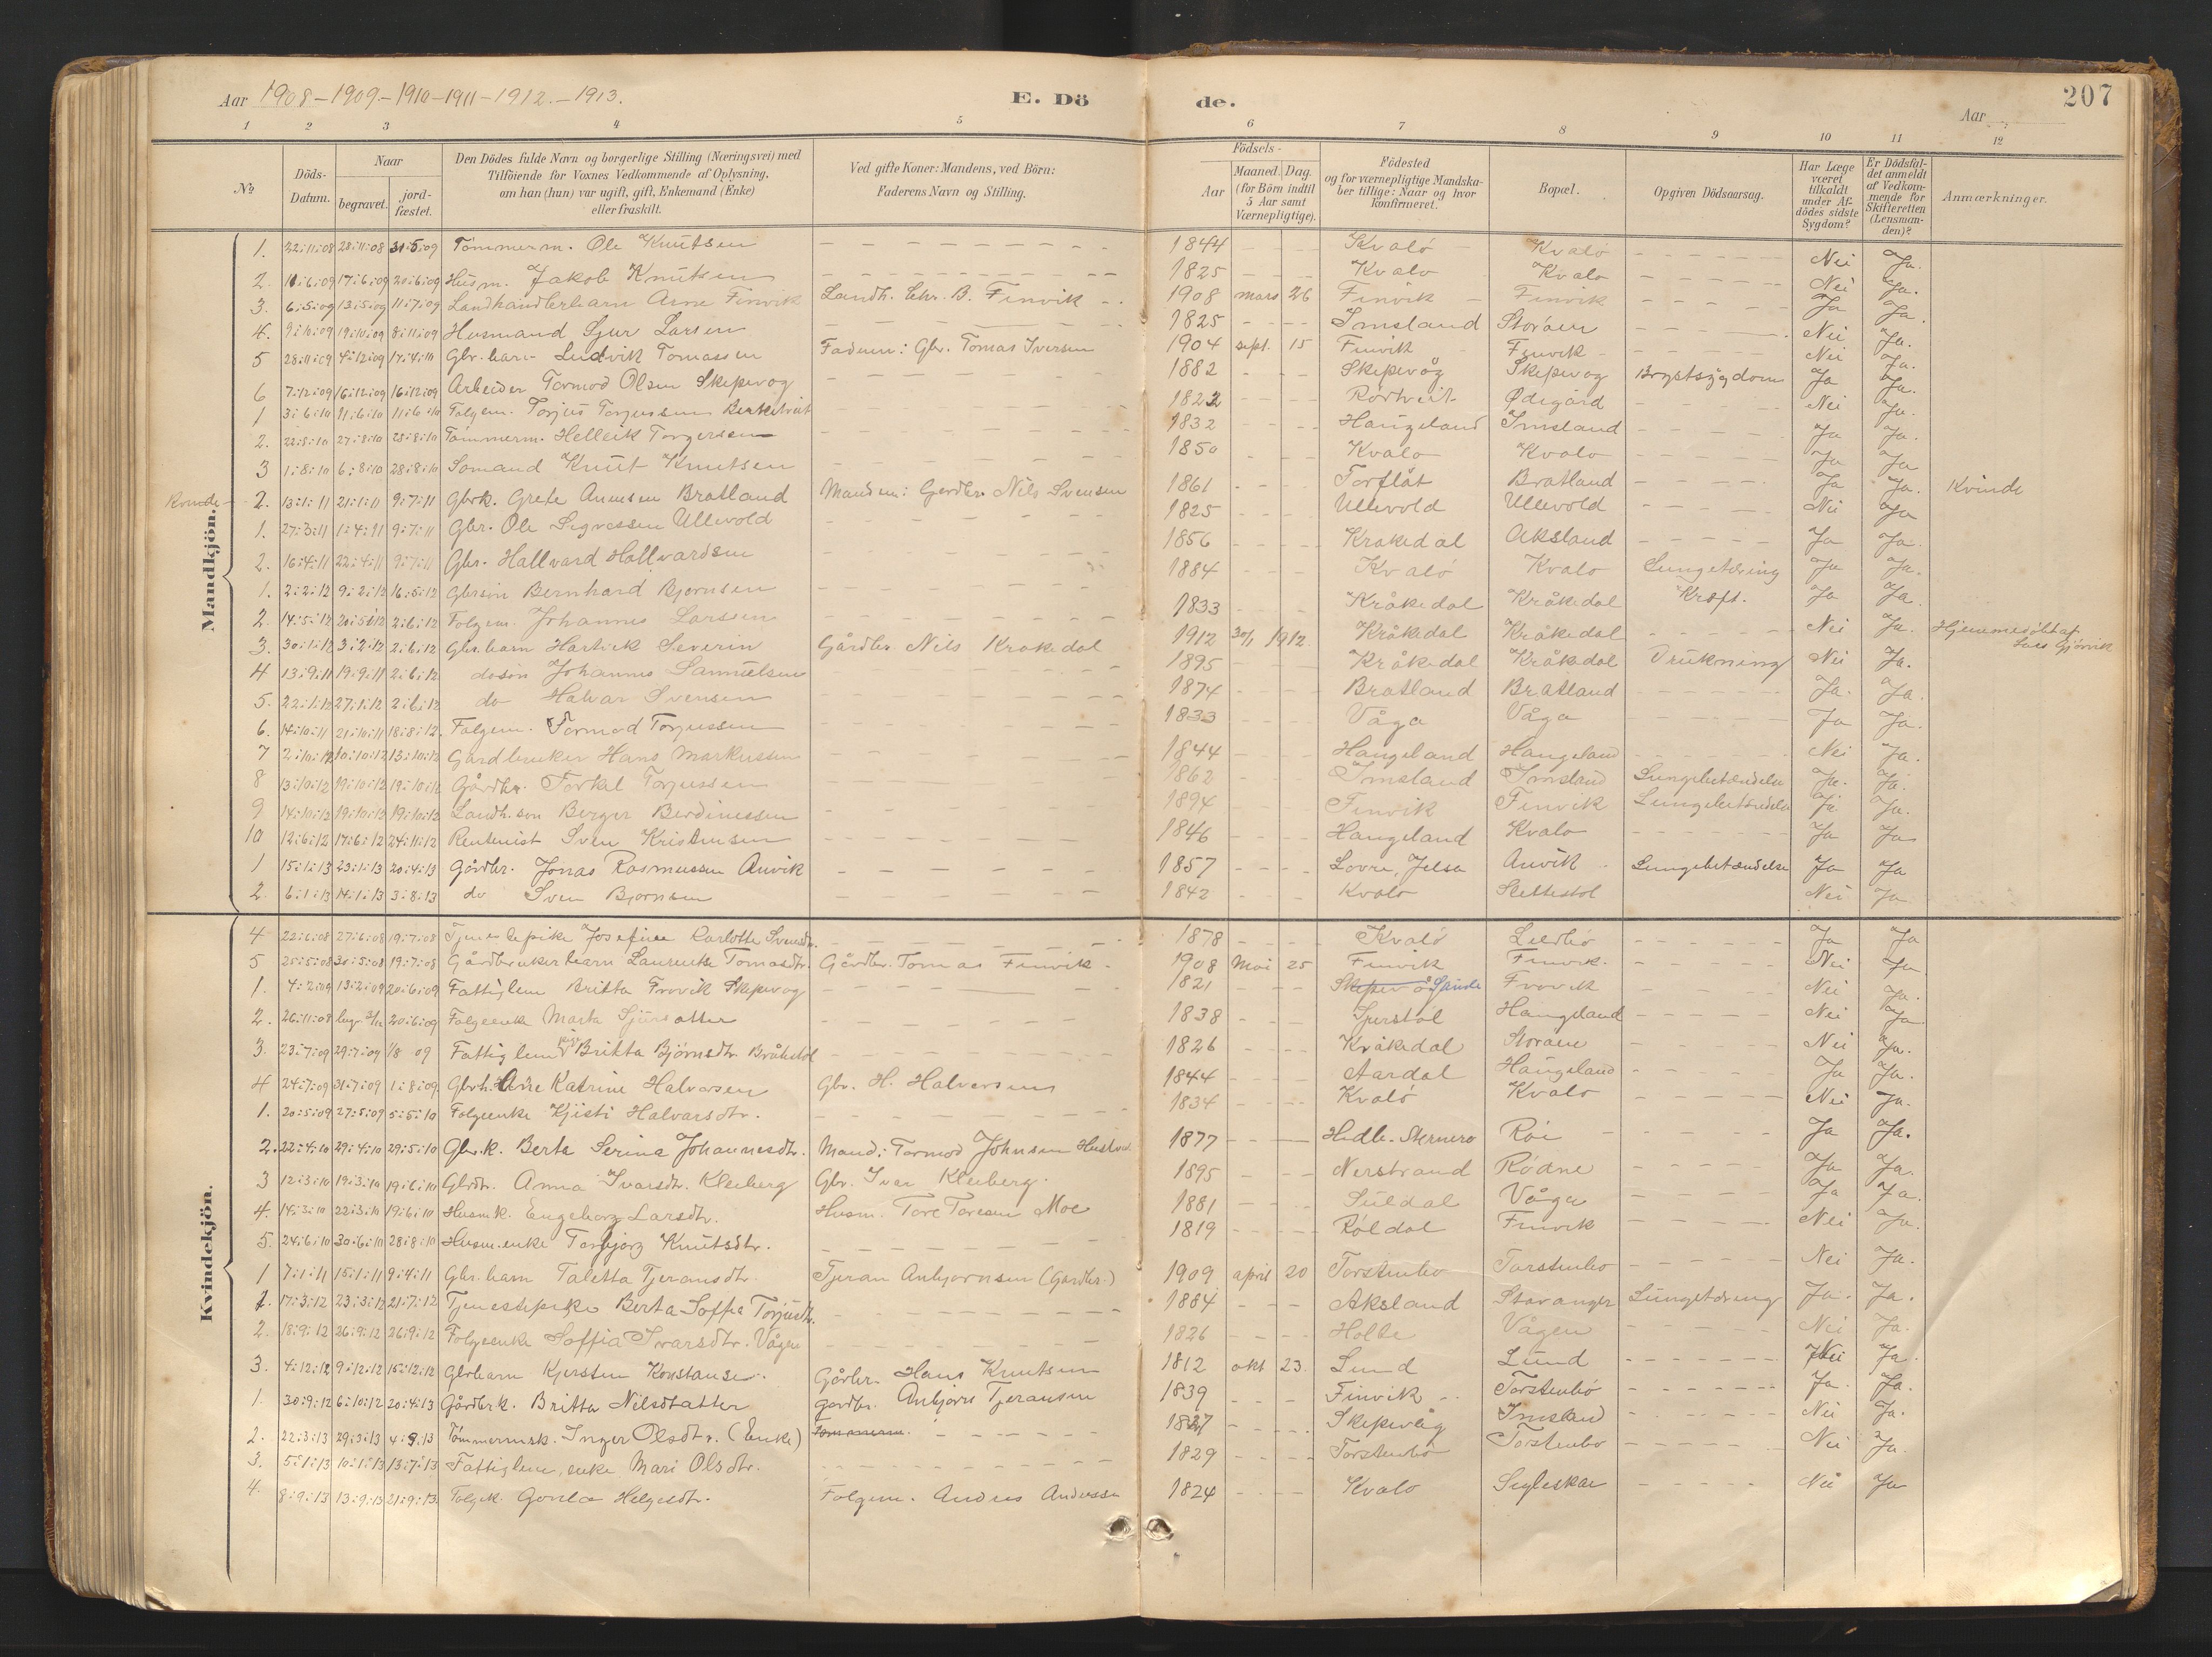 Aar 1908-1909-1910-1911-1912.-1913. E. Dö de. Aar 207
1 2 3 4 5 6 7 8 9 10 11 12
№ Döds-Datum. Naar begravet. jord-fæstet. Den Dödes fulde Navn og borgerlige Stilling (Næringsvei) med Tilföiende for Voxnes Vedkommende af Oplysning, om han (hun) var ugift, gift, Enkemand (Enke) eller fraskilt. Ved gifte Koner: Mandens, ved Börn: Faderens Navn og Stilling. Födsels- Aar Maaned. Dag. (for Börn indtil 5 Aar samt Værnepligtige). Födested og for værnepligtige Mandskaber tillige: Naar og hvor konfirmeret. Bopæl. Opgiven Dödsaarsag. Har Læge været tilkaldt under Afdödes sidste Sygdom? Er Dödsfaldet anmeldt af Vedkommende for Skifteretten (Lensmanden)? Anmærkninger.
Mandkjön.
1. 22:11:08 28:11:08 31:5:09 Tömmerm. Ole Knutsen 1844 Kvalö Kvalö Nei Ja.
2. 11:6:09 17:6:09 20:6:09 Husm. Jakob Knutsen 1825 Kvalo Kvalo Nei Ja.
3. 6:5:09 13:5:09 11:7:09 Landhandlerbarn Arne Finvik Landh. Chr. B. Finvik 1908 mars 26 Finvik Finvik Ja Ja.
4. 9:10:09 19:10:09 8:11:09 Husmand Sjur Larsen 1825 Imsland Storåen Nei Ja.
5 28:11:09 4:12:09 17:4:10 Gbr. barn Ludvik Tomassen Faderen: Gbr. Tomas Iversen 1904 sept. 15 Finvik Finvik Nei Ja.
6 7:12:09 16:12:09 16:12:09 Arbeider Tormod Olsen Skepevog 1882 Skepevåg Skepevog Brystsygdom Ja Ja.
1 3:6:10 11:6:10 11:6:10 Folgem. Torjus Torjussen 1822 Rörtveit Ødegård Nei Ja.
2. 22:8:10 27:8:10 28:8:10 Tömmerm. Helleik Torgersen 1832 Haugeland Imsland Ja Ja.
3 1:8:10 6:8:10 28:8:10 Somand Knut Knutsen 1850 Kvalo Kvalo Ja Ja
Kvinde 2. 13:1:11 21:1:11 9:7:11 Gbrk. Grete Bratland Manden: Gardbr. Nils Svensen 1861 Torflåt Bratland Ja Ja. Kvinde
1. 27:3:11 1:4:11 9:7:11 Gbr. Ole Ullevold 1825 Ullevold Ullevold Nei Ja
2. 16:4:11 22:4:11 9:7:11 Gbr. Hallvard Hallvardsen 1856 Krakedal Aksland Ja Ja.
1. 2:2:12 9:2:12 16:5:12 Gbrsön Bernhard Bjornsen 1884 Kvalö Kvalo Lungetæring Ja Ja.
2. 14:5:12 20:5:12 2:6:12 Folgem. Johannes Larssen 1833 Kråkedal Kråkedal Kræft. Ja Ja.
3. 30:1:12 3:2:12 2:6:12 Gbr. barn Severin Gårdbr. Nils Krakedal 1912 30/1 1912 Kråkedal Kråkedal Nei Ja. Hjemmedöbt af Lars Gjövik
4 13:9:11 19:9:11 2:6:12 do sön Johannes Samuelsen 1895 Kråkedal Kråkedal Drukning Nei Ja.
5. 22:1:12 27:1:12 2:6:12 do Halvar Svensen 1874 Bratland Bratland Ja. Ja.
6. 14:10:11 21:10:11 18:8:12 Folgem. Tormod Torjussen 1833 Våga Våga Ja Ja.
7 2:10:12 10:10:12 13:10:12 Gardbruker Hans Markussen 1844 Haugeland Haugeland Nei Ja.
8 13:10:12 19:10:12 19:10:12 Gårdbr. Torkel Torjussen 1862 Imsland Imsland Lungebetændelse Ja. Ja.
9 14:10:12 19:10:12 19:10:12 Landh. son Berger Berdinessen 1894 Finvik Finvik Lungebetændelse Ja Ja.
10 12:6:12 17:6:12 24:11:12 Rentenist Sven Kristensen 1846 Haugeland Kvalo Ja Ja
1 15:1:13 23:1:13 20:4:13 Gårdbr. Jonas Rasmussen Anvik 1857 Lovra, Jelsa Anvik Lungebetændelse Ja Ja
2 6:1:13 14:1:13 3:8:13 do Sven Bjornsen 1842 Kvalo Slettestöl Nei Ja
Kvindekjön.
4 22:6:08 27:6:08 19:7:08 Tjenestepike Josefine Karlotte Svensdtr. 1878 Kvalö Ja Ja
5 25:5:08 30:5:08 19:7:08 Gårdbrukerbarn Laurentse Tomasdtr. Gårdbr. Tomas Finvik 1908 Mai 25 Finvik Finvik. Nei Ja
1. 4:2:09 13:2:09 20:6:09 Fattiglem Britta Frovik Skepevog 1821 Skepevåg Sande Frovik Nei Ja.
2. 26:11:08 begr. 3/12 20:6:09 Folgeenke Marta Sjursdatter 1838 Haugeland Nei Ja
3. 23:7:09 29:7:09 1/8 09 Fattiglem Britta Björnsdtr. 1826 Kråkedal Storåen Nei Ja.
4 24:7:09 31:7:09 1:8:09 Katrine Halvorsen Gbr. H. Halvorsens 1844 Aardal Haugeland Ja Ja.
1. 20:5:09 27:5:09 5:5:10 Folgeenke Kjisti Halvarsdtr. 1834 Kvalö Kvalo Nei Ja.
2. 22:4:10 29:4:10 29:5:10 Gbr.k. Berta Serina Johannesdtr. Mand: Tormod Johnsen 1877 Röi Ja Ja.
3 12:3:10 19:3:10 19:6:10 Gbrdtr. Anna Ivarsdtr. Kleiberg Gbr. Ivar Kleiberg. 1895 Nerstrand Rödne Ja Ja.
4. 14:3:10 22:3:10 19:6:10 Husmk. Engeborg Larsdtr. Husm. Tore Toresen Moe 1881 Suldal Våga Ja Ja.
5. 24:6:10 30:6:10 28:8:10 Husm. enke Torbjorg Knutsdtr. 1819 Röldal Finvik Nei Ja.
1 7:1:11 15:1:11 9:4:11 Gbr. barn Taletta Tjeransdtr. Tjeran Anbjornsen (Gardbr.) 1909 april 20 Torstenbo Torstenbo Nei Ja.
1. 17:3:12 23:3:12 21:7:12 Tjenestepike Berta Soffia Torjusdtr. 1884 Aksland Stavanger Lungetæring Ja. Ja.
2. 18:9:12 26:9:12 26:9:12 Folgeenke Soffia Ivarsdtr. Vågen 1826 Vågen Nei Ja.
3. 4:12:12 9:12:12 15:12:12 Gbrbarn Kjersten Konstanse. Gårbr. Hans Knutsen 1812 okt 23. Lund Lund Nei Ja.
1. 30:9:12 6:10:12 20:4:13 Gårdbrk. Britta Nilsdtatter Gardbr. Anbjörn Tjeransen 1839 Finvik Torstenbö Ja. Ja.
2. 22:3:13 29:3:13 4:9:13 Tömmermsk. Inger Olsdtr. (Enke) Tommerm. 1827 Skepevåg Imsland Nei Ja.
3. 5:1:13 10:1:13 13:7:13 Fattiglem, enke Mari Olsdtr. 1829 Torstenbo Torstenbo Nei Ja.
4. 8:9:13 13:9:13 21:9:13. Folgk. Helgesdtr. Folgem. Andres Anderssen 1824 Kvalo Nei Ja